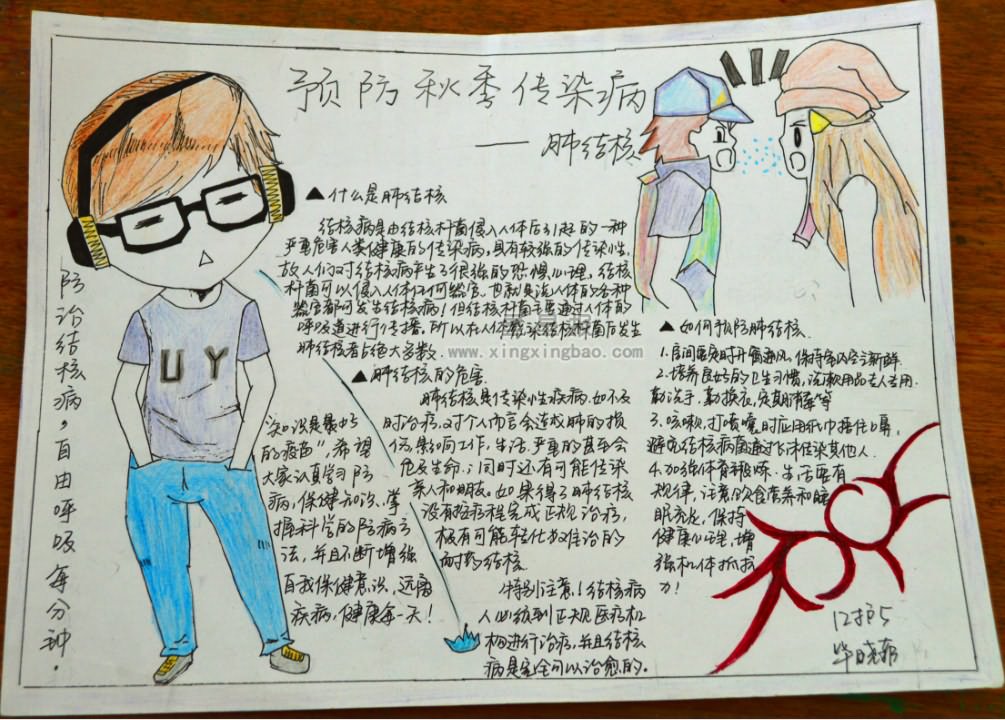 预防秋季传染病
——肺结核
▲什么是肺结核
结核病是由结核杆菌侵入人体后引起的一种
严重危害人类健康的传染病,具有较强的传染性,
故人们对结核病产生了很强的恐惧心理,结核
杆菌可以侵入人体任何器官。也就是说人体的各种
器官都可发生结核病!但结核杆菌主要通过人体的
呼吸道进行传播,所以在人体感染结核杆菌后发生
肺结核者占绝大多数.
www.xingxingbao.com
▲肺结核的危害.
肺结核是传染性疾病.如不及
时治疗,对个人而言会造成肺的损
伤,影响工作,生活.严重的甚至会
危及生命;同时还有可能传染
亲人和朋友。如果得了肺结核
没有按疗程完成正规治疗,
极有可能转化为难治的
耐药结核.
特别注意!结核病
人必须到正规医疗机
构进行治疗,并且结核
病是完全可以治愈的。
▲如何预防肺结核.
1.房间要定时开窗通风,保持室内空气新鲜
2.培养良好的卫生习惯,洗漱用品专人专用.
勤洗手,勤换衣,定期消毒等
3.咳嗽,打喷嚏时应用纸巾捂住口鼻,
避免结核病菌通过飞沫传染其他人.
4.加强体育锻炼.生活要有
规律,注意饮食营养和睡
眠充足,保持
健康心理,增
强机体抵抗
力!
"知识是最好
的疫苗",希望
大家认真学习防
病,保健知识、掌
握科学的防病方
法,并且不断增强
自我保健意识,远离
疾病,健康每一天!
防治结核病,自由呼吸每分钟.
UY
12护5
华晓